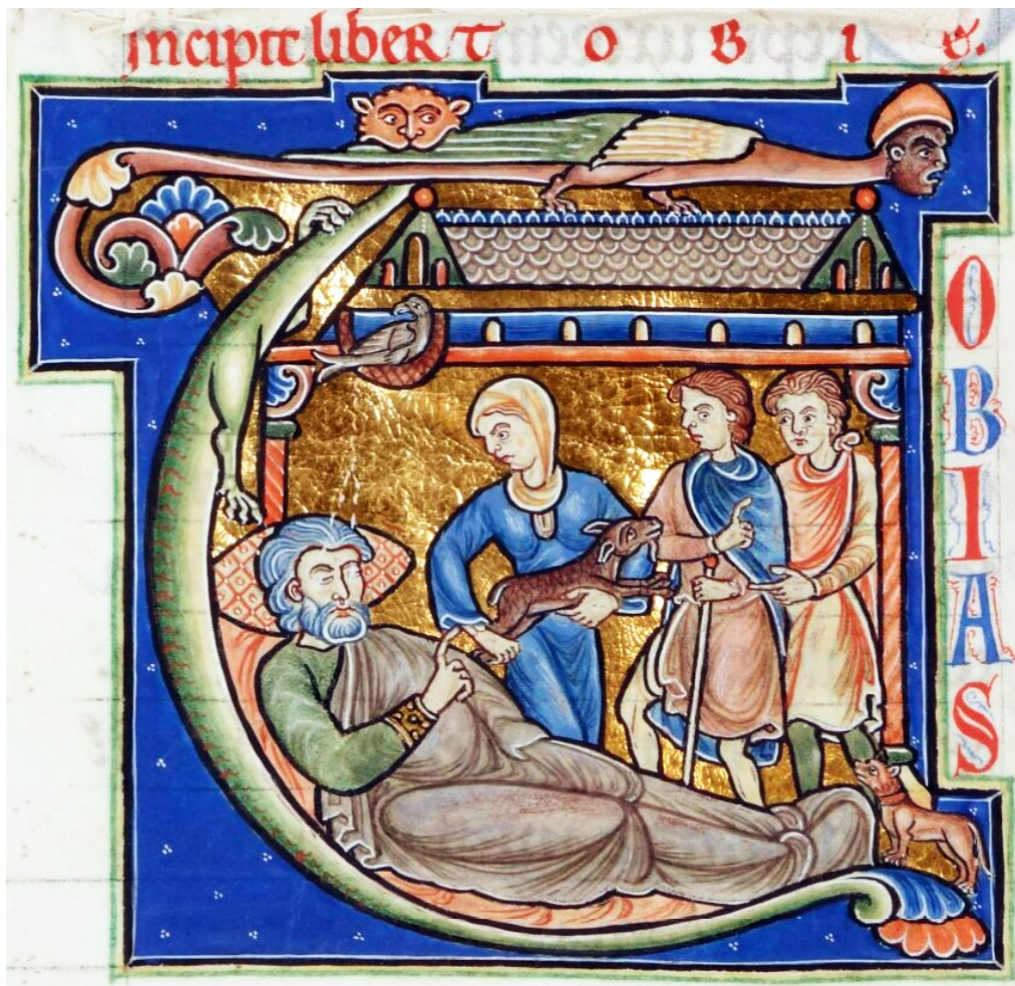 incipit liber T O B I E.
OBIAS